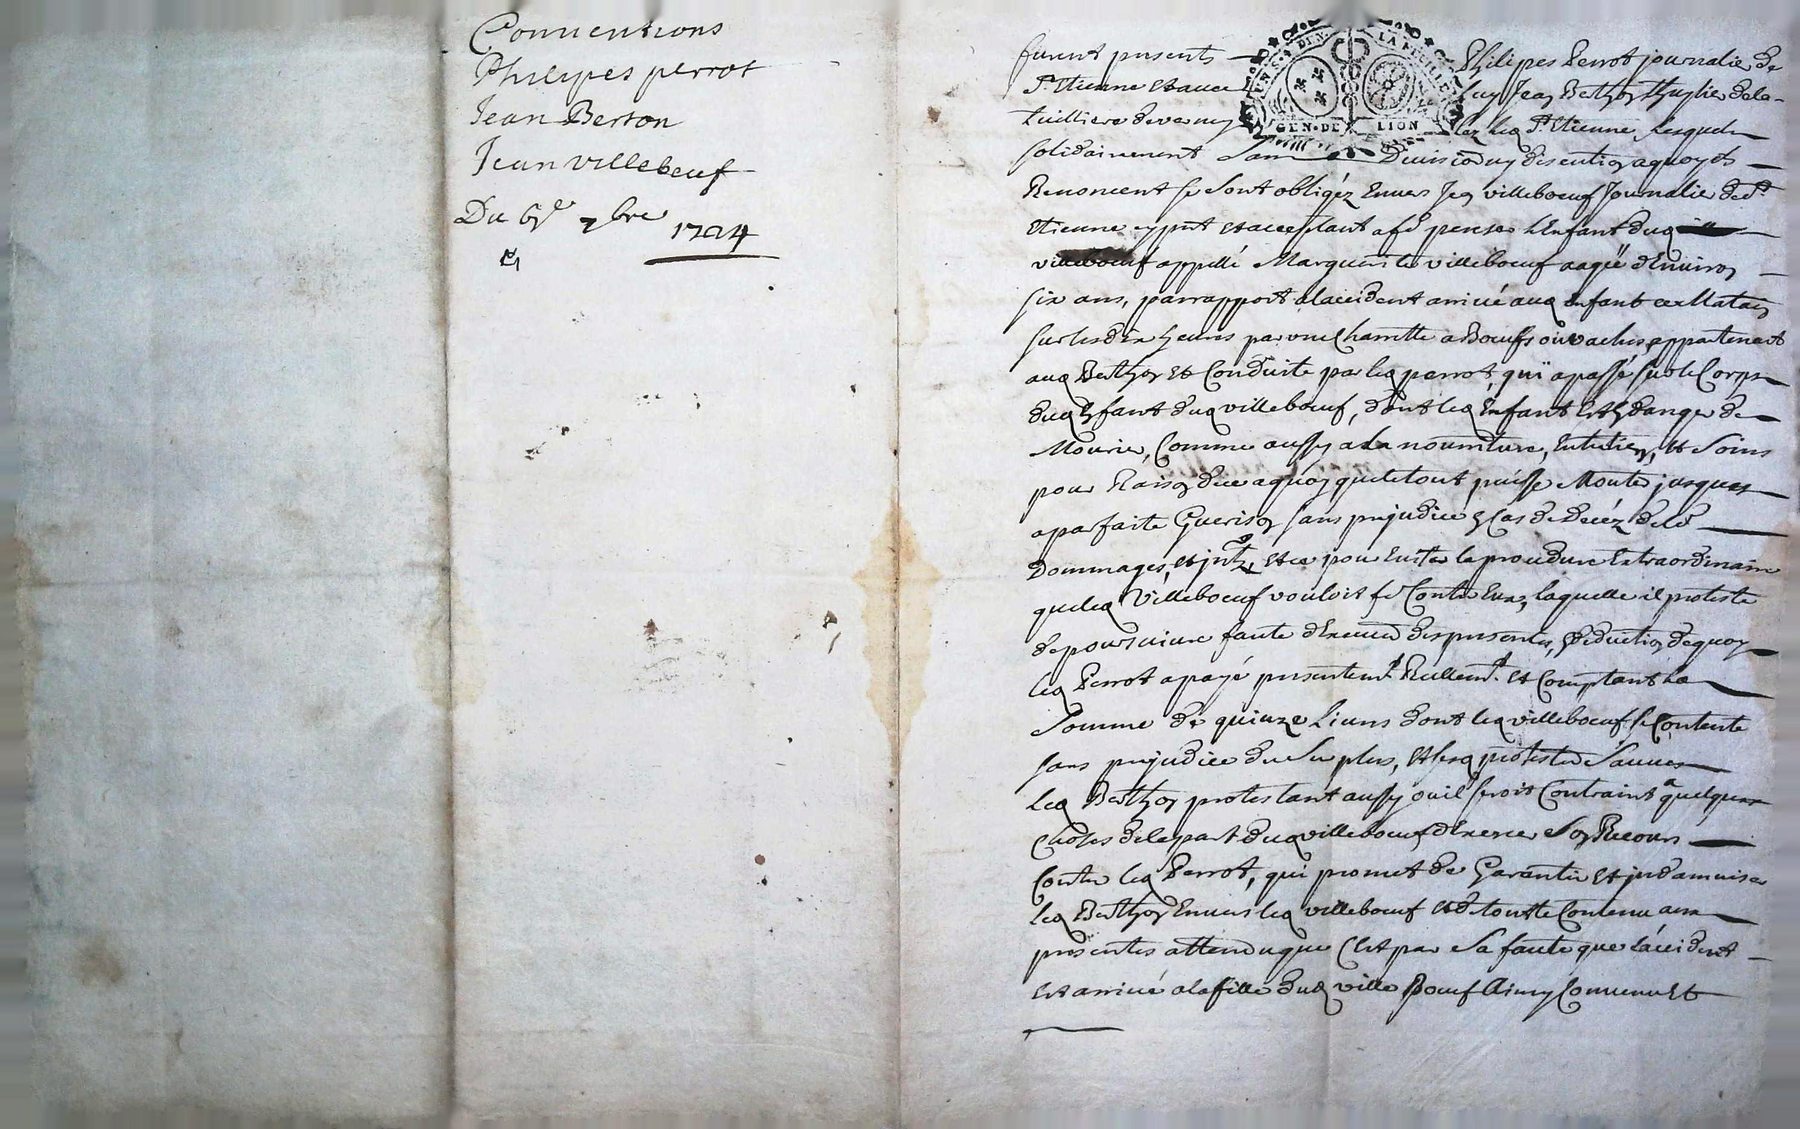 Conventions
Philipes perrot
Jean Berton
Jean villebeuf
Du 6e 7bre 1724
furent presents Philipes Perrot journalie de
St. Etienne et avec luy Jean Berthon thuylier de la
tuilliere de
lez led St. Etienne, lesquels
solidairement sans Division ny discution a quoy ils
Renoncent se sont obligéz Envers Jean villeboeuf Journalie de St.
Etienne cy pnt et acceptant a fe penser L'Enfant dud
villeboeuf appellé Marguerite villeboeuf aagée d'Environ
six ans, par rapport a l'accident arrivé aud enfant ce Matain
sur les dix heures par une Charrette a Boeufs ou vaches appartenant
aud Berthon et Conduite par led perrot, qui a passé sur le Corps
dud Enfant dud villeboeuf, dont led Enfant est en danger de
Mourir, Comme aussy a La nourriture, Entretien, et Soins
pour Raison de ce a quoy que le tout puisse Monter jusques
a parfaite Guerison sans prejudice en Cas de Decéz de
Dommages, et jnts, et ce pour Eviter la procedure Extraordinaire
que led Villeboeuf vouloit fe Contre Eux, laquelle il proteste
de poursuivre faute d'Execution des presentes, En Deduction de quoy
led Perrot a payé presentemt. Reellemt. et Comptant La
Somme de quinze Livres dont led villeboeuf se Contente
sans prejudice du Surplus, et sesd protestes Sauves
led Berthon protestant aussy ou il seroit Contraint a quelques
Choses de la part dud villeboeuf d'Exercer Son Recours
Contre led Perrot, qui promet de Garentir et jndamniser
led Berthon Envers led villeboeuf et de tout le Contenu aux
presentes attendu que C'est par Sa faute que l'accident
est arrivé a la fille dud ville Boeuf Ainsy Convenu Et
GEN. DE LION